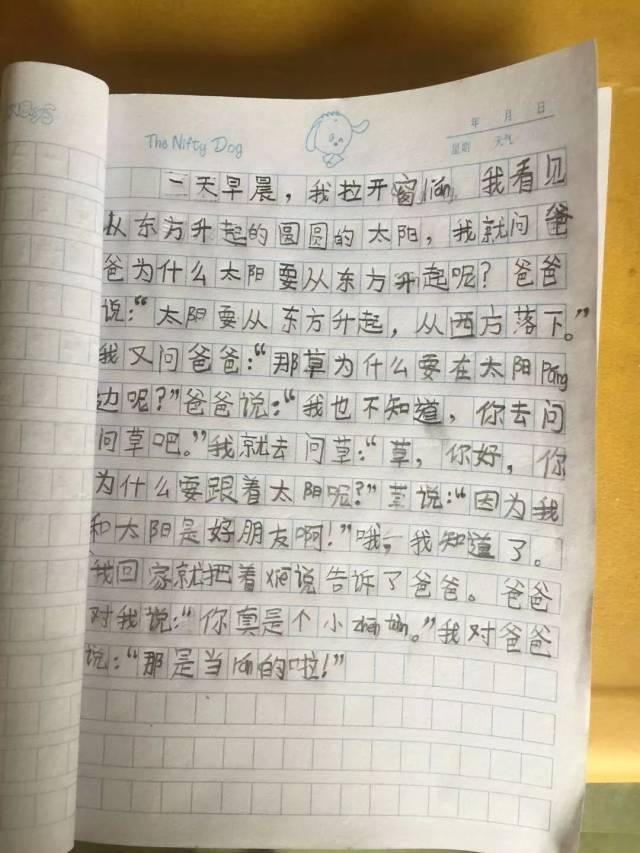 The Nifty Dog
年 月 日
星期 天气
一天早晨，我拉开窗lián，我看见
从东方升起的圆圆的太阳，我就问爸
爸为什么太阳要从东方升起呢？爸爸
说：“太阳要从东方升起，从西方落下。”
我又问爸爸：“那草为什么要在太阳páng
边呢？”爸爸说：“我也不知道，你去问
问草吧。”我就去问草：“草，你好，你
为什么要跟着太阳呢？”草说：“因为我
和太阳是好朋友啊！”哦，我知道了。
我回家就把着说告诉了爸爸。爸爸
对我说：“你真是个小zhēn tàn。”我对爸爸
说：“那是当rán的啦！”